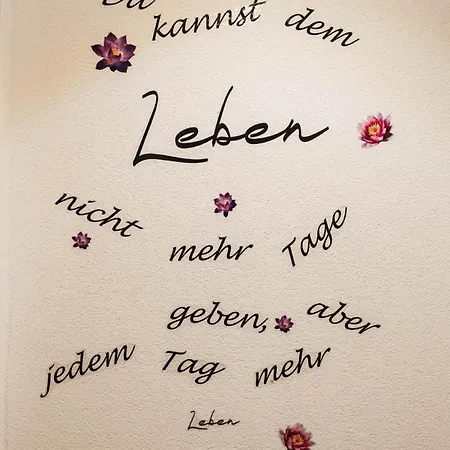 Du kannst dem
Leben
nicht mehr Tage
geben, aber
jedem Tag mehr
Leben